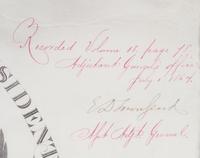 Recorded Volume 18, page
Adjutant General's Office
July 1867.
E D Townsend
Asst Adjt General.
SIDENT